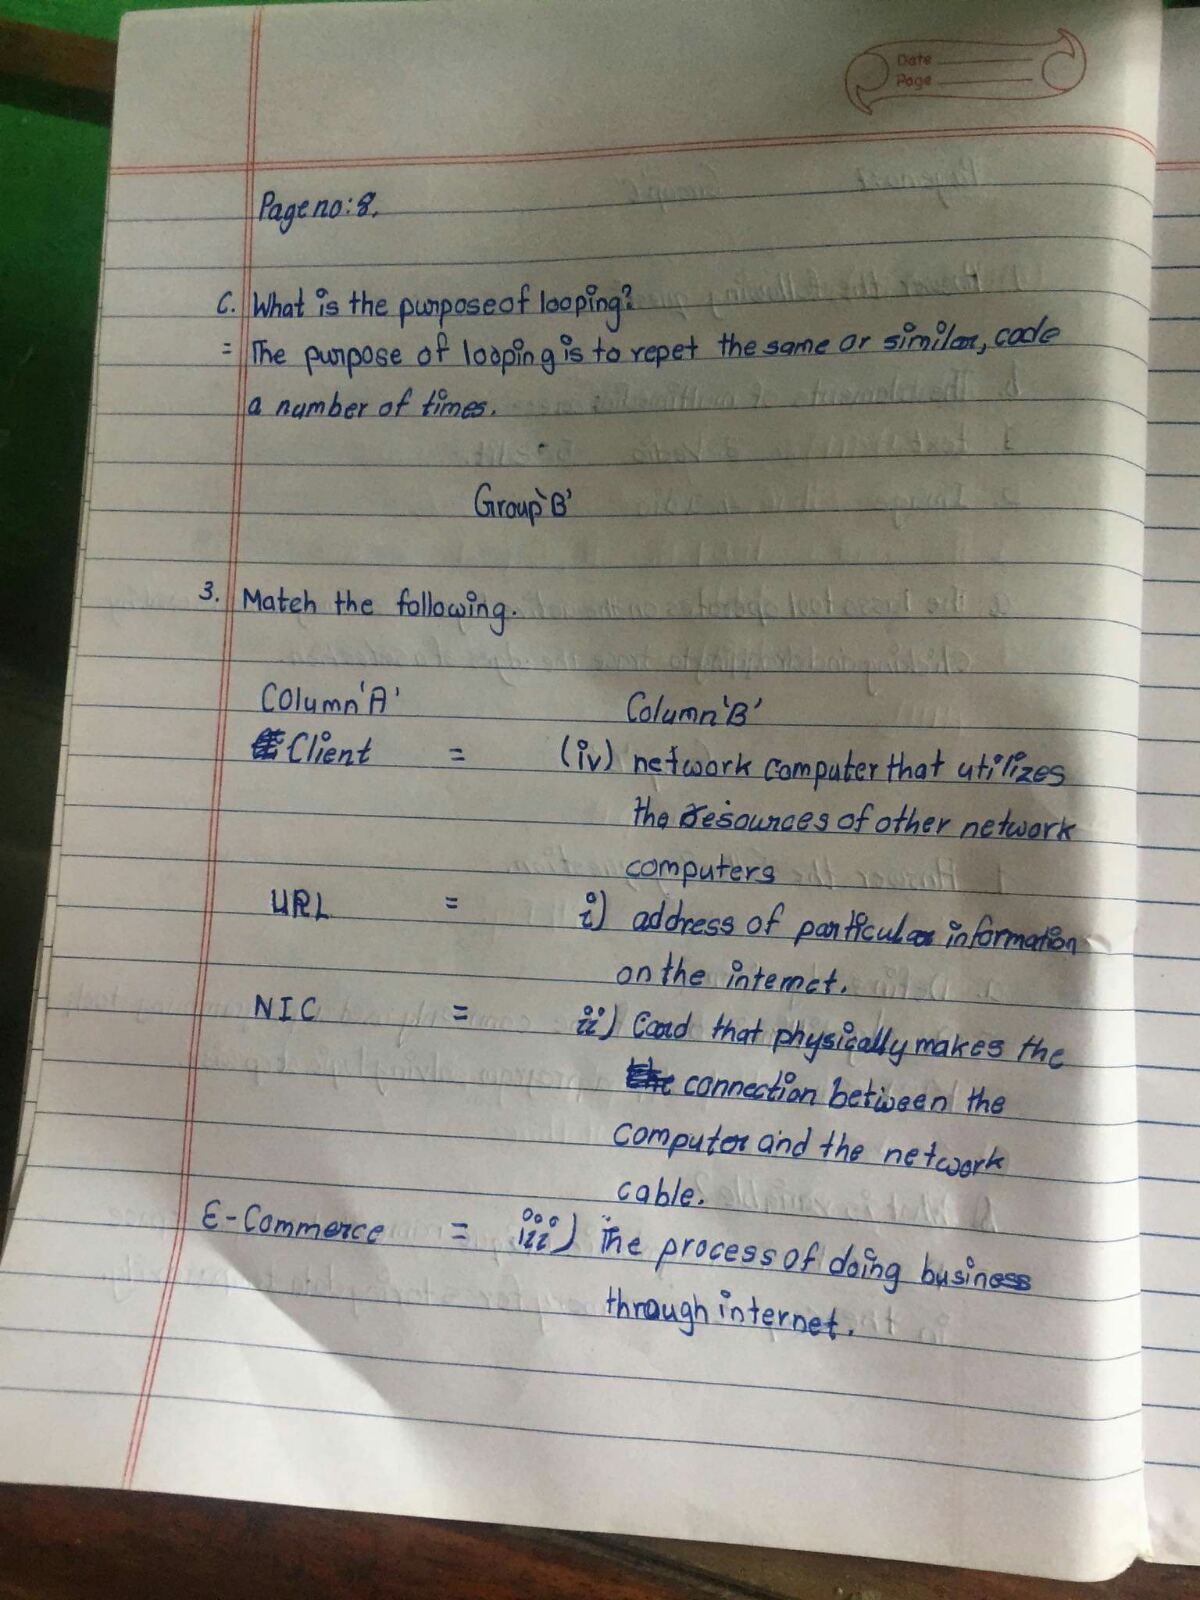 Date
Page
Page no: 8.
C. What is the purpose of looping?
= The purpose of looping is to repet the same or similar, code
a number of times.
Group 'B'
3. Match the following.
Column 'A' Column 'B'
Client = (iv) network computer that utilizes
the resources of other network
computers
URL = i) address of particular information
on the internet.
NIC = ii) Card that physically makes the
connection between the
computer and the network
cable.
E-Commerce = iii) The process of doing business
through internet.